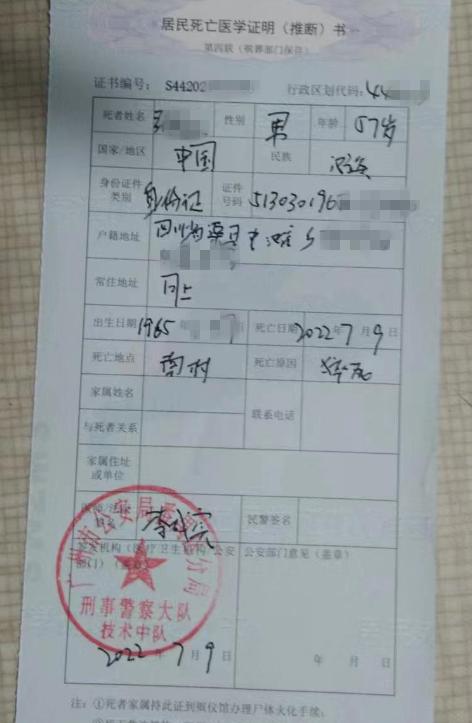 居民死亡医学证明（推断）书
第四联（殡葬部门保存）
证书编号： S44202 行政区划代码：44
死者姓名 性别 男 年龄 57岁
国家/地区 中国 民族 汉族
身份证件类别 身份证 证件号码 513030196
户籍地址 四川省渠县 乡
常住地址 同上
出生日期 1965 7 死亡日期 2022年7月9日
死亡地点 南村 死亡原因 猝死
家属姓名 联系电话
与死者关系
家属住址或单位
医师/法医 民警签名
签发机构（医疗卫生机构/公安部门）（盖章） 公安部门意见（盖章）
广州市公安局番禺区分局
刑事警察大队
技术中队
2022年7月9日 年 月 日
注：①死者家属持此证到殡仪馆办理尸体火化手续；